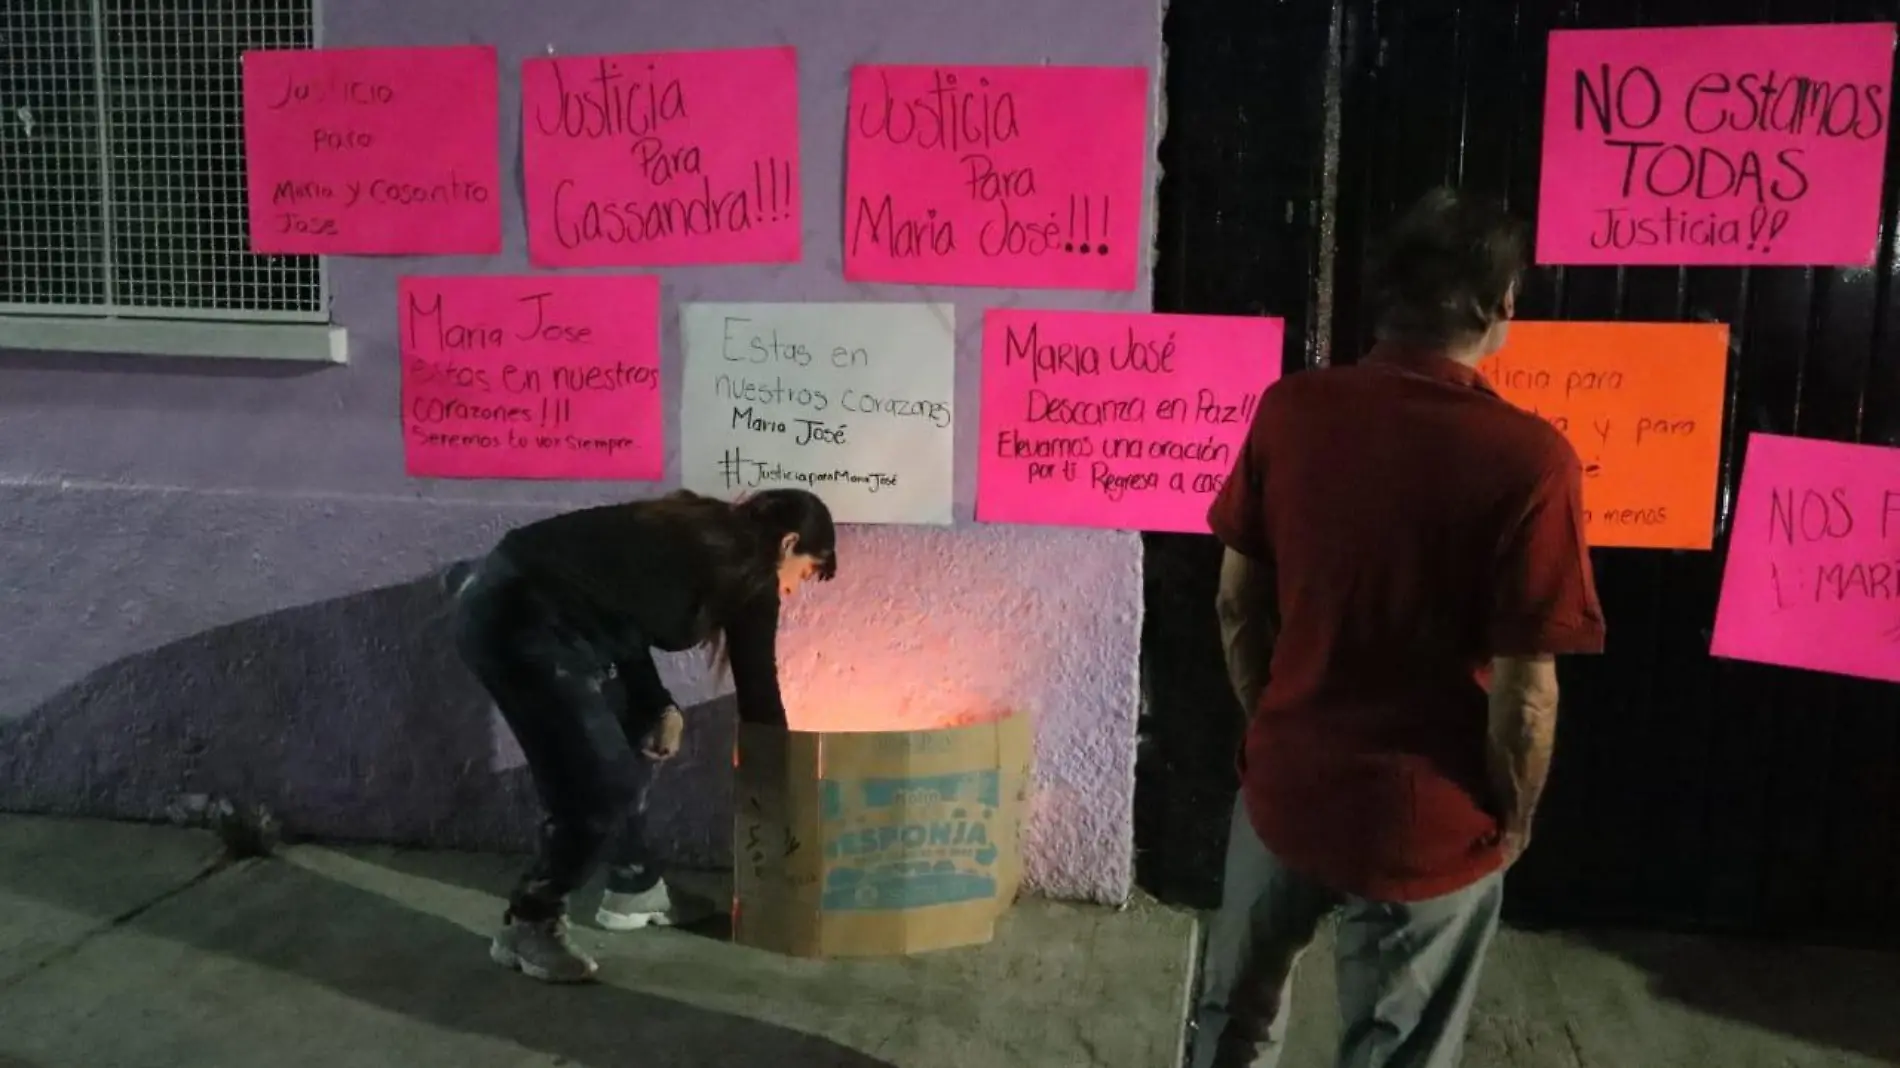 Justicia
Para
Maria y Casantra
Jose
Justicia
Para
Cassandra!!!
Justicia
Para
Maria José!!!
NO estamos
TODAS
Justicia!!
Maria Jose
estas en nuestros
corazones!!!
Seremos tu voz siempre
Estas en
nuestros corazones
Maria José
#JusticiaparaMariaJosé
MARIA José
Descanza en Paz!!
Elevamos una oración
por ti Regresa a cas
ticia para
a y para
é
a menos
NOS F
MARI
ESPONJA